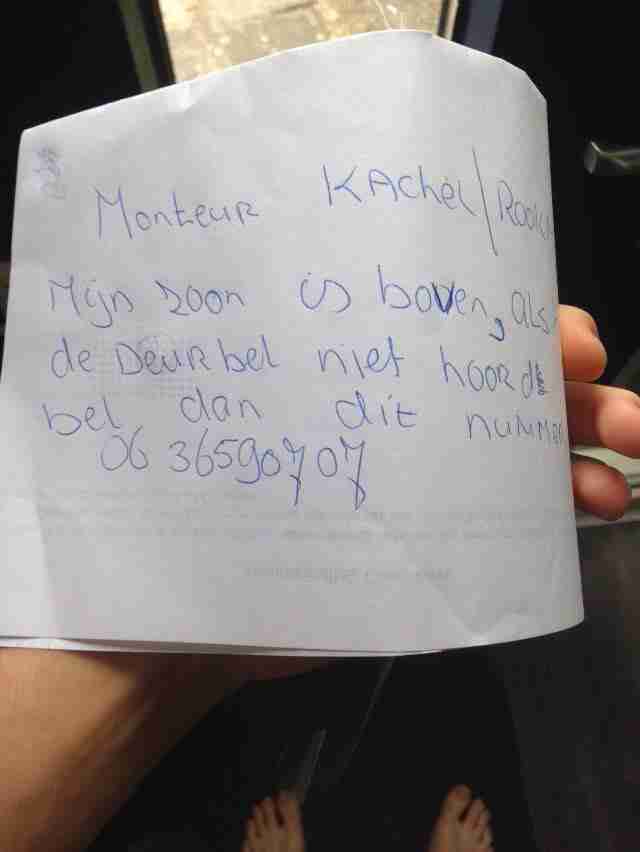 Monteur KAchel/Rook
Mijn zoon is boven, als
de Deurbel niet hoorde
bel dan dit nummer
06 36590707